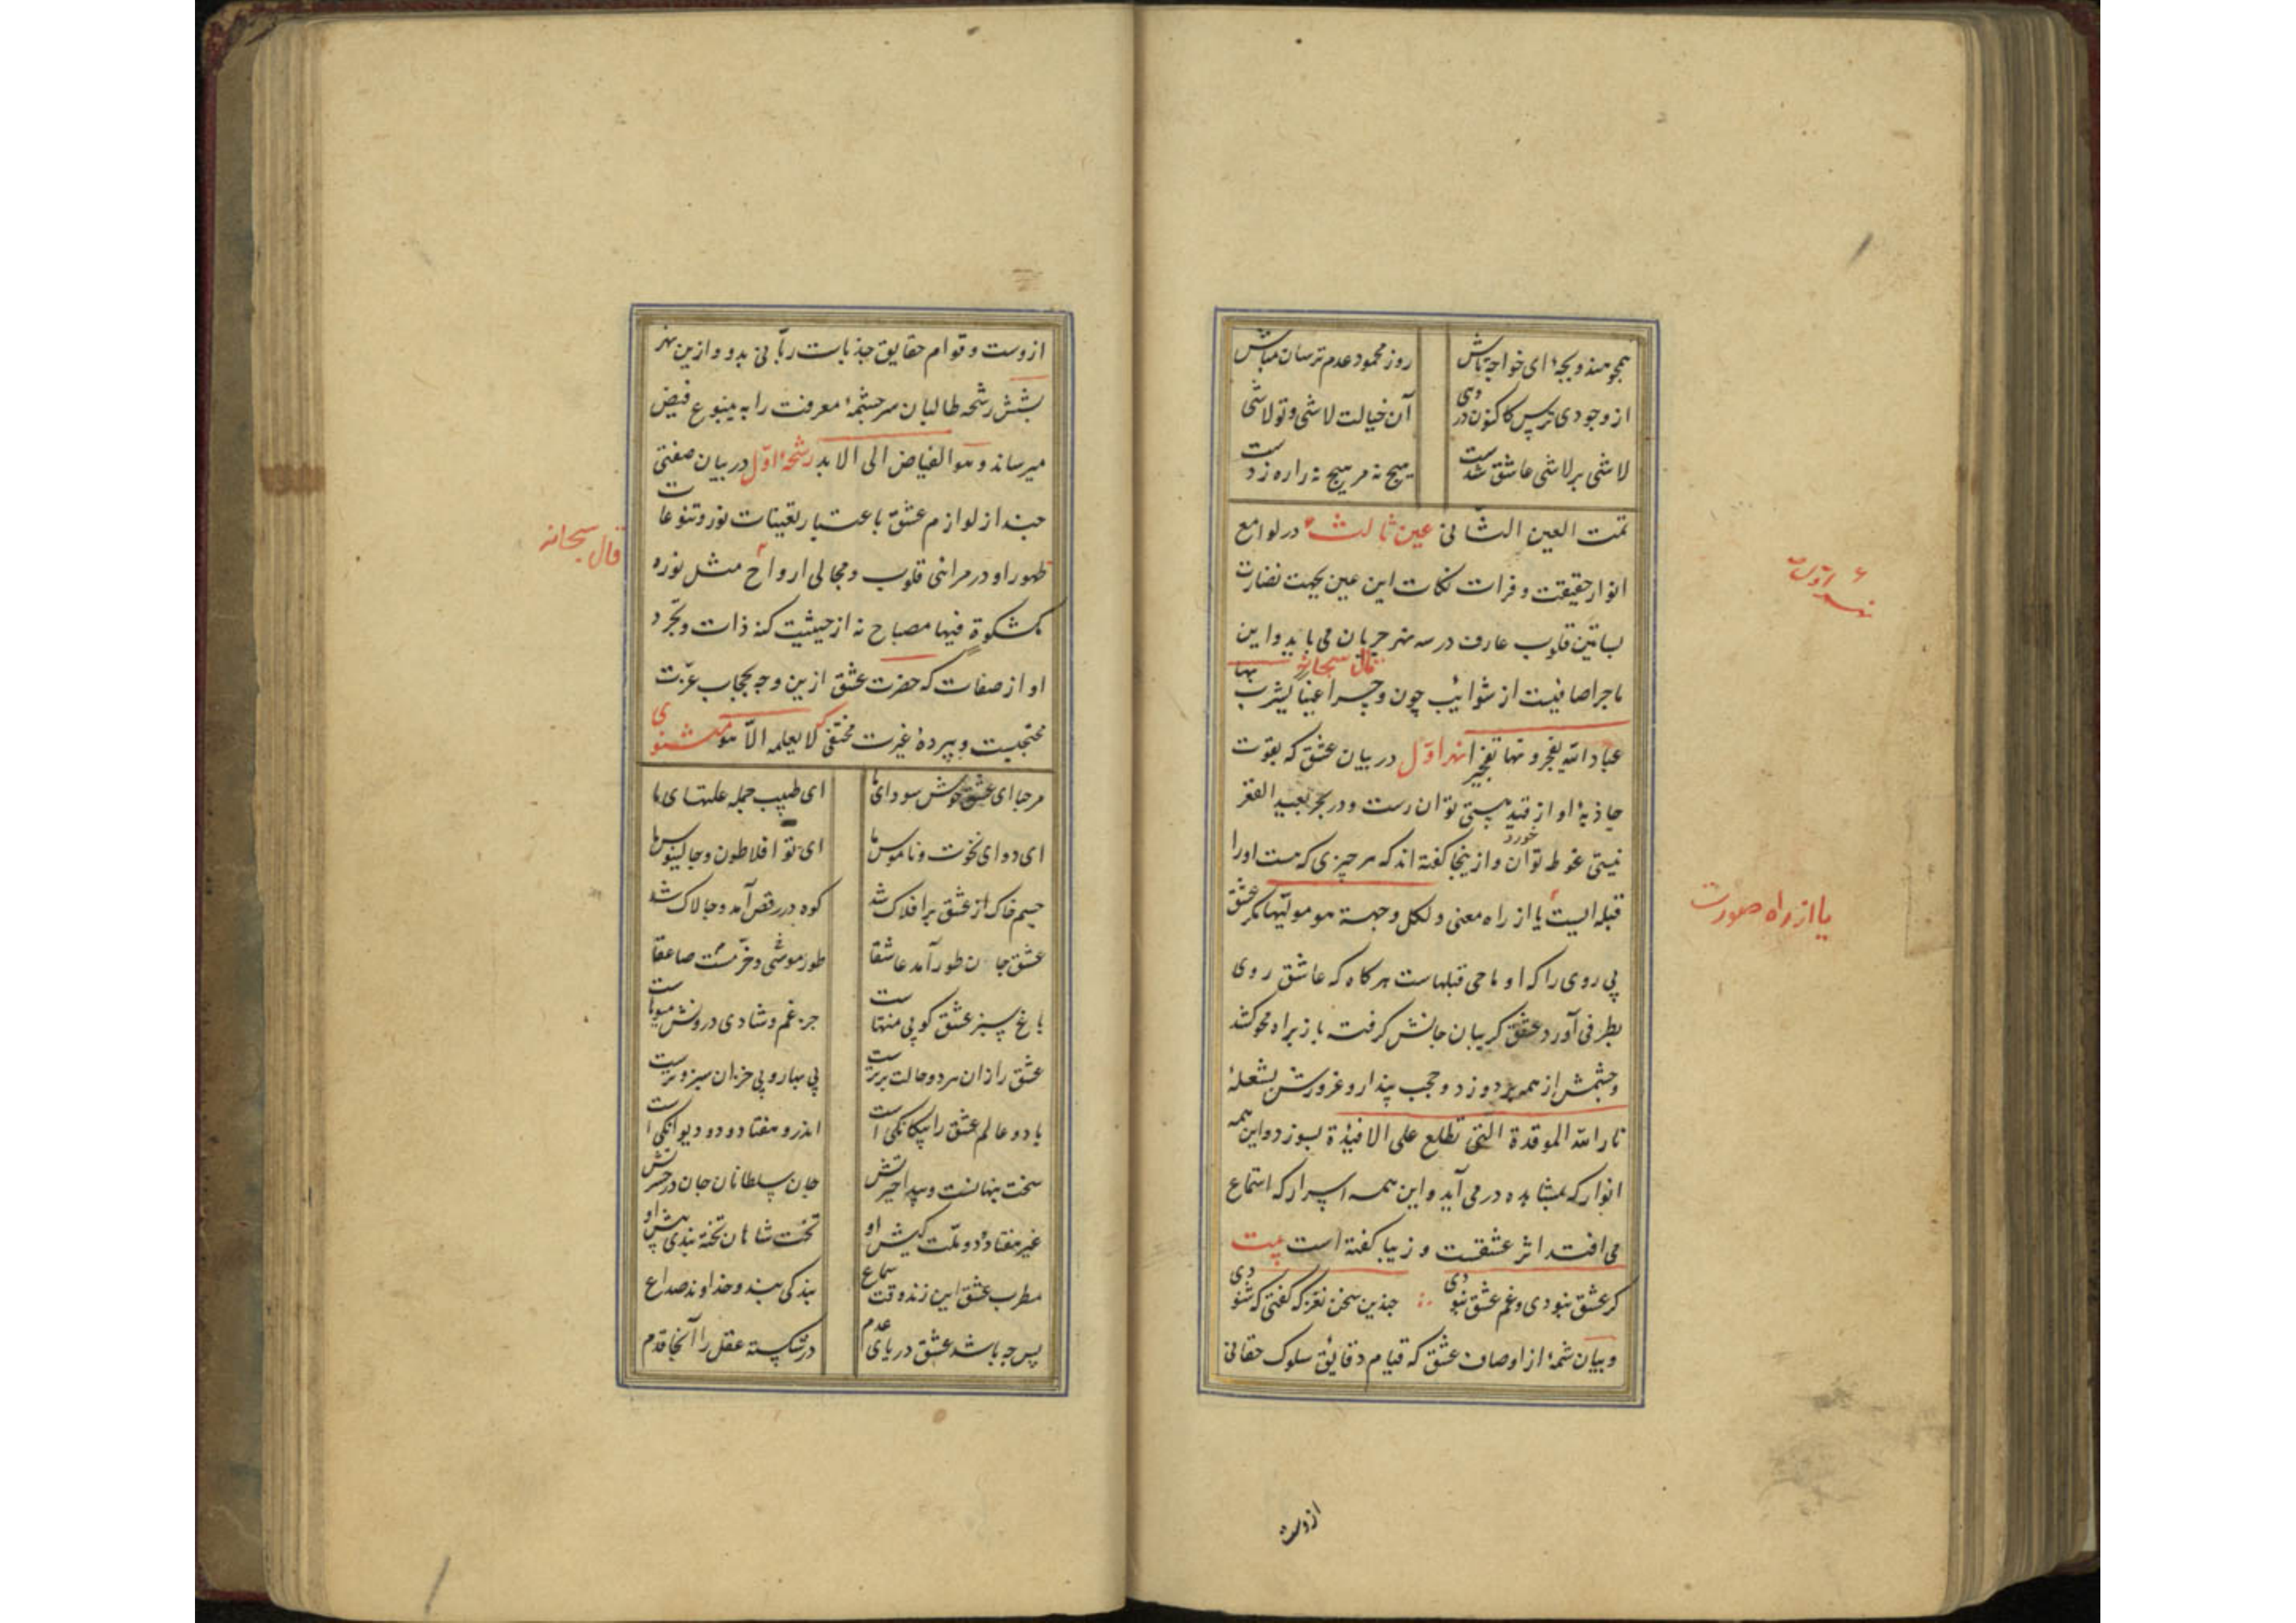 همچو هندو بچهٔ ای خواجه تاش
روز محمود عدم ترسان مباش
از وجودی ترس کاکنون در وی
آن خیالت لاشی و تو لاشی
لاشی بر لاشی عاشق شدست
هیچ نه مر هیچ نه را ره زدست
تمت العین الثانی عین ثالث در لوامع
انوار حقیقت و فرات نکات این عین بجهت نضارت
بساتین قلوب عارف در سه نهر جریان می یابد و این
قال سبحانه
ماجرا صافیست از شوایب چون و چرا عینا یشرب بها
عباد الله یفجرونها تفجیرا نهر اول در بیان عشق که بقوت
جاذبهٔ او از قید هستی توان رست و در بحر بعید القعر
نیستی غوط توان خورد و ازینجا گفته اند که هر چیزی که هست او را
قبله ایست یا از راه معنی و لکل وجهة هو مولیها مگر عشق
یا از راه صورت
بی روی را که او ماحی قبلهاست هر کاه که عاشق روی
بطرفی آورد عشق کریبان جانش کرفت باز براه محو کشد
و چشمش از همه بر دوزد و حجب پندار و غرورش بشعلهٔ
نار الله الموقدة التی تطلع علی الافیدة بسوزد و این همه
انوار که بمشاهده در می آید و این همه اسرار که استماع
می افتد اثر عشقست و زیبا کفته است بیت
کر عشق نبودی و غم عشق نبودی ∴ چندین سخن نغز که کفتی که شنودی
و بیان شمهٔ از اوصاف عشق که قیام دقایق سلوک حقانی
ازوست
ازوست و قوام حقایق جذبات ربانی بدو و ازین نهر
بشش رشحه طالبان سرچشمهٔ معرفت را به ینبوع فیض
میرساند و هو الفیاض الی الابد رشحهٔ اول در بیان صفتی
چند از لوازم عشق باعتبار تعینات نور و تنوعات
قال سبحانه
ظهور او در مرائی قلوب و مجالی ارواح مثل نوره
کمشکوة فیها مصباح نه از حیثیت کنه ذات و تجرد
او از صفات که حضرت عشق ازین وجه بحجاب عزت
محتجبست و بپردهٔ غیرت مختفی که لا یعلمه الا هو مثنوی
مرحبا ای عشق خوش سودای ما
ای طبیب جمله علتهای ما
ای دوای نخوت و ناموس ما
ای تو افلاطون و جالینوس ما
جسم خاک از عشق بر افلاک شد
کوه در رقص آمد و چالاک شد
عشق جان طور آمد عاشقا
طور مست و خر موسی صاعقا
باغ سبز عشق کو بی منتهاست
جز غم و شادی درونش میوهاست
عشق را زان هر دو حالت برترست
بی بهار و بی خزان سبز و ترست
با دو عالم عشق را بیکانکی است
اندرو هفتاد و دو دیوانکی است
سخت پنهانست و پیدا حیرتش
جان سلطانان جان در حسرتش
غیر هفتاد و دو ملت کیش او
تخت شاهان تخته بندی پیش او
مطرب عشق این زند وقت سماع
بندکی بند و خداوند صداع
پس چه باشد عشق دریای عدم
در شکسته عقل را آنجا قدم